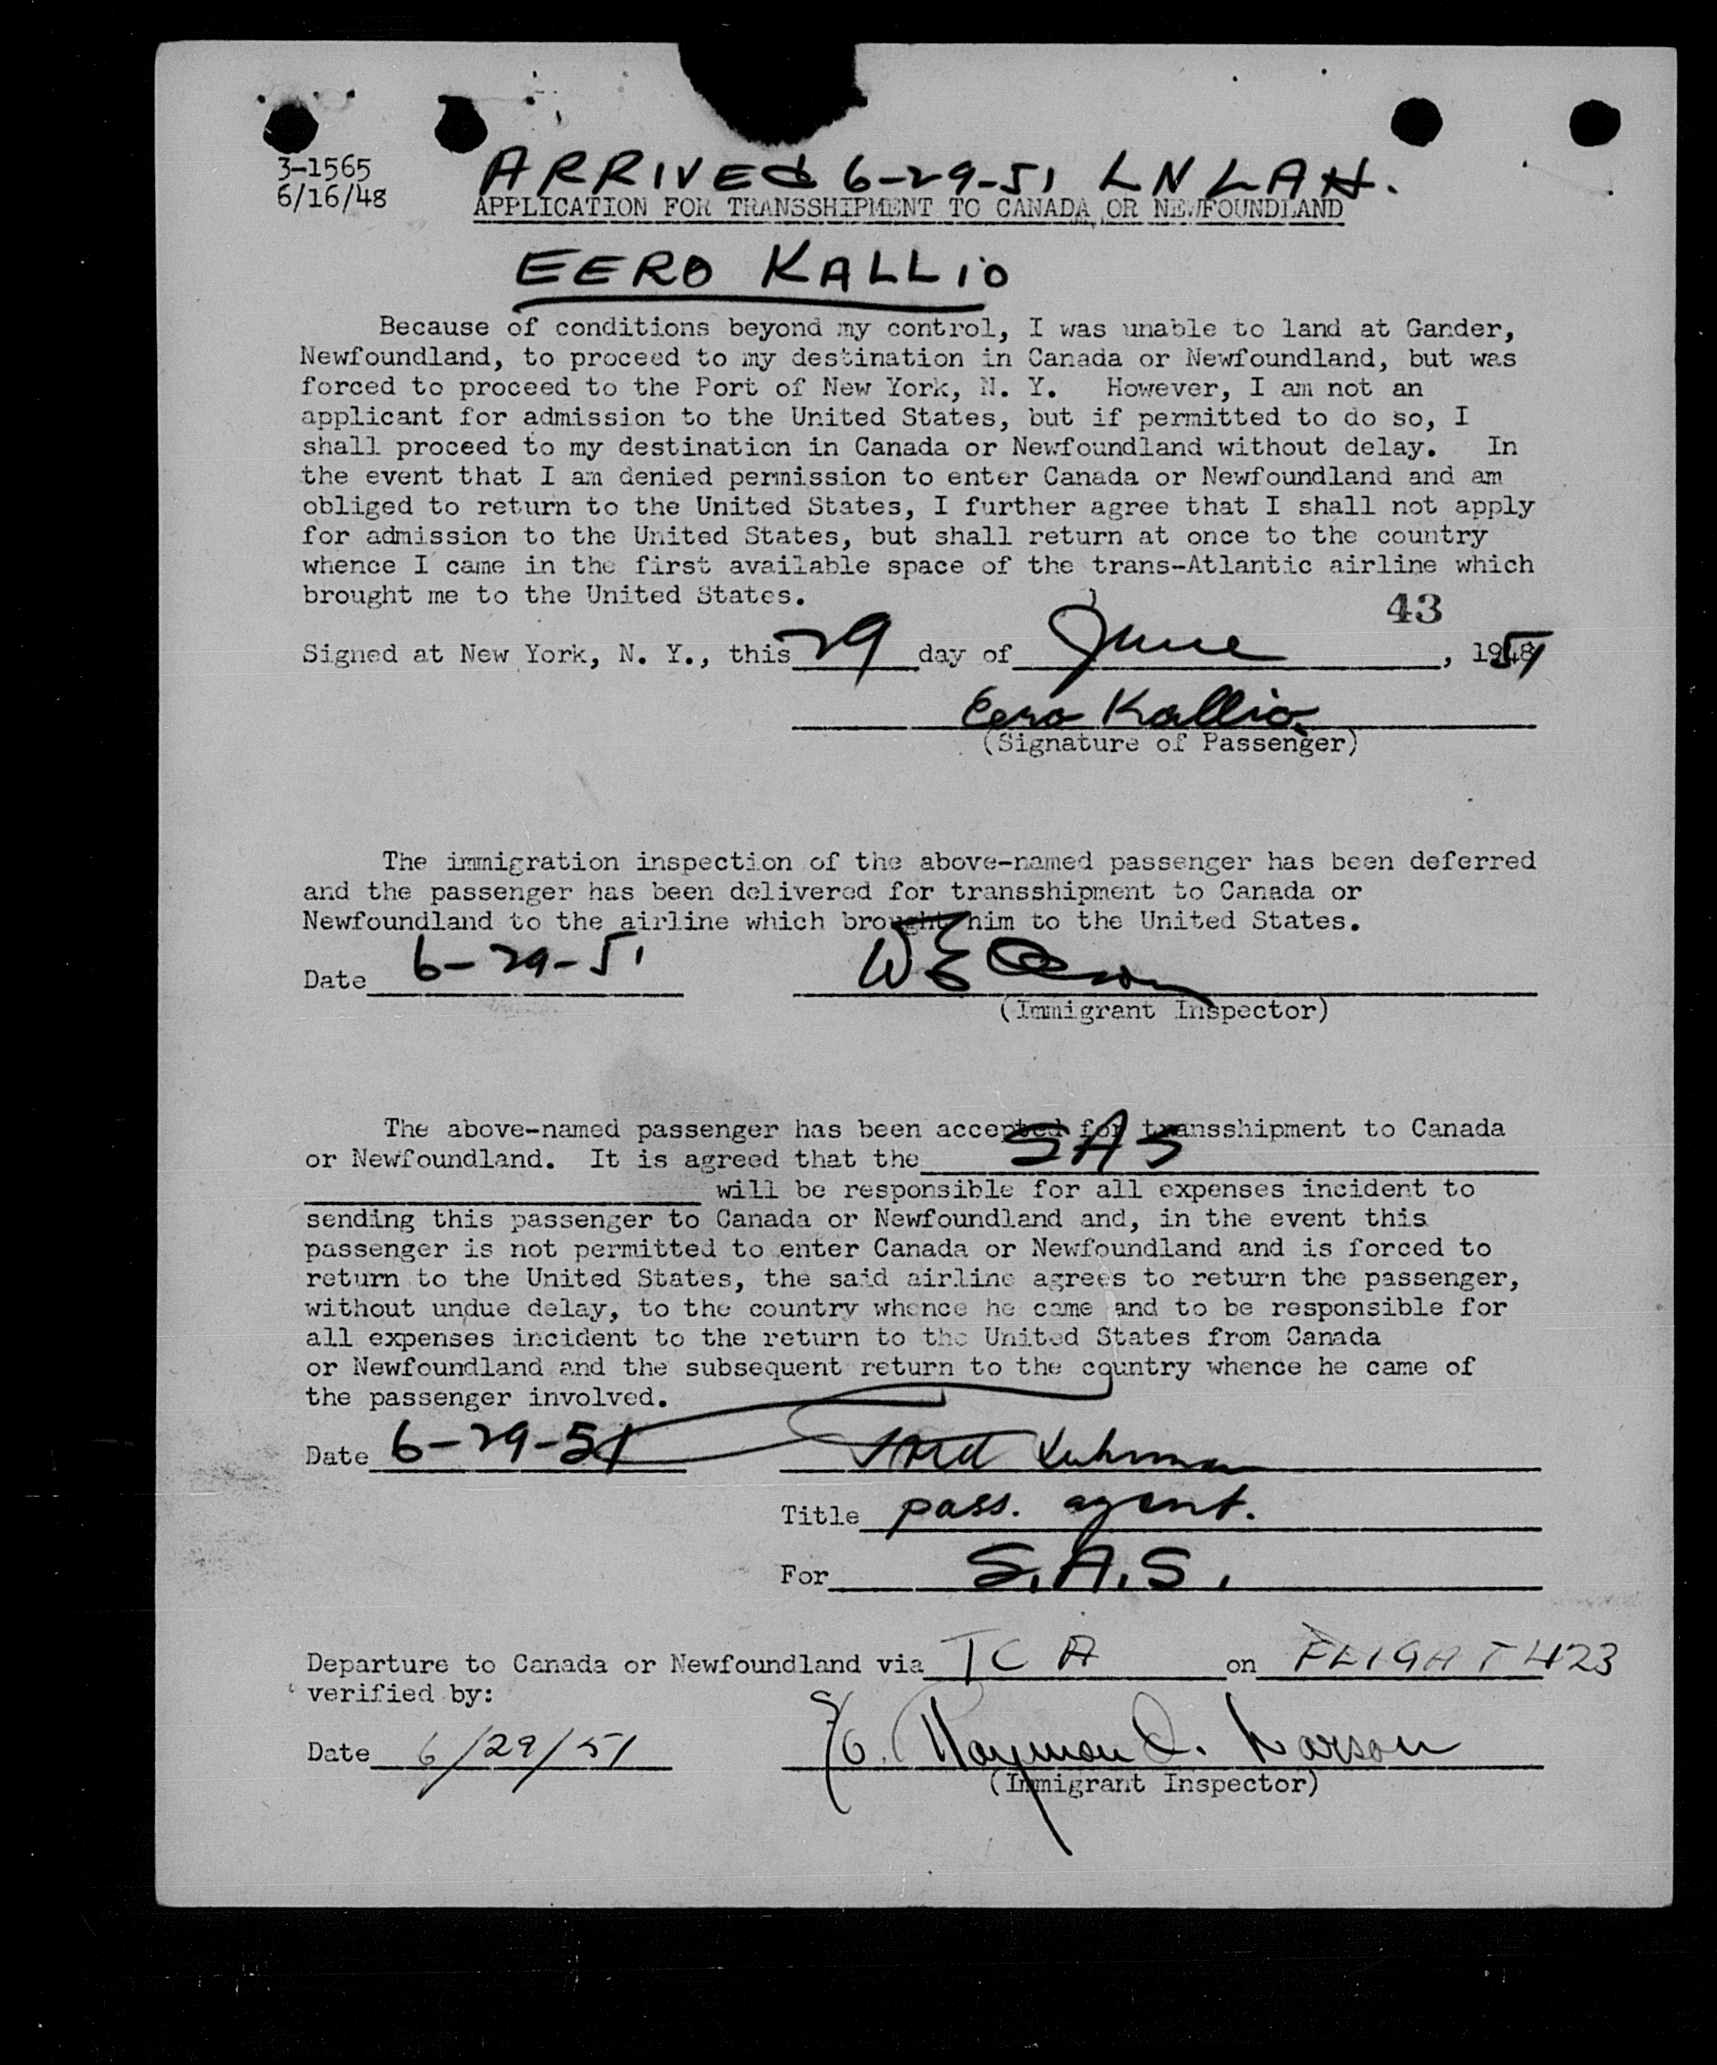 3-1565
6/16/48
ARRIVED 6-29-51 LN LAH.
APPLICATION FOR TRANSSHIPMENT TO CANADA OR NEWFOUNDLAND
EERO KALLIO
Because of conditions beyond my control, I was unable to land at Gander,
Newfoundland, to proceed to my destination in Canada or Newfoundland, but was
forced to proceed to the Port of New York, N. Y. However, I am not an
applicant for admission to the United States, but if permitted to do so, I
shall proceed to my destination in Canada or Newfoundland without delay. In
the event that I am denied permission to enter Canada or Newfoundland and am
obliged to return to the United States, I further agree that I shall not apply
for admission to the United States, but shall return at once to the country
whence I came in the first available space of the trans-Atlantic airline which
brought me to the United States.
43
Signed at New York, N. Y., this 29 day of June, 1951
Eero Kallio
(Signature of Passenger)
The immigration inspection of the above-named passenger has been deferred
and the passenger has been delivered for transshipment to Canada or
Newfoundland to the airline which brought him to the United States.
Date 6-29-51 W E Olson
(Immigrant Inspector)
The above-named passenger has been accepted for transshipment to Canada
or Newfoundland. It is agreed that the SAS
will be responsible for all expenses incident to
sending this passenger to Canada or Newfoundland and, in the event this
passenger is not permitted to enter Canada or Newfoundland and is forced to
return to the United States, the said airline agrees to return the passenger,
without undue delay, to the country whence he came and to be responsible for
all expenses incident to the return to the United States from Canada
or Newfoundland and the subsequent return to the country whence he came of
the passenger involved.
Date 6-29-51
Title pass. agent.
For S.A.S.
Departure to Canada or Newfoundland via TCA on FLIGHT 423
verified by:
Date 6/29/51 Raymon D. Larson
(Immigrant Inspector)